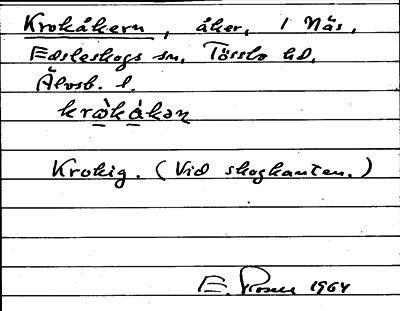 Krokåkern, åker, i Näs,
Edsleskogs sn, Tössbo hd,
Älvsb. l.
kròkåkən
Krokig. (Vid skogkanten.)
E. 1964